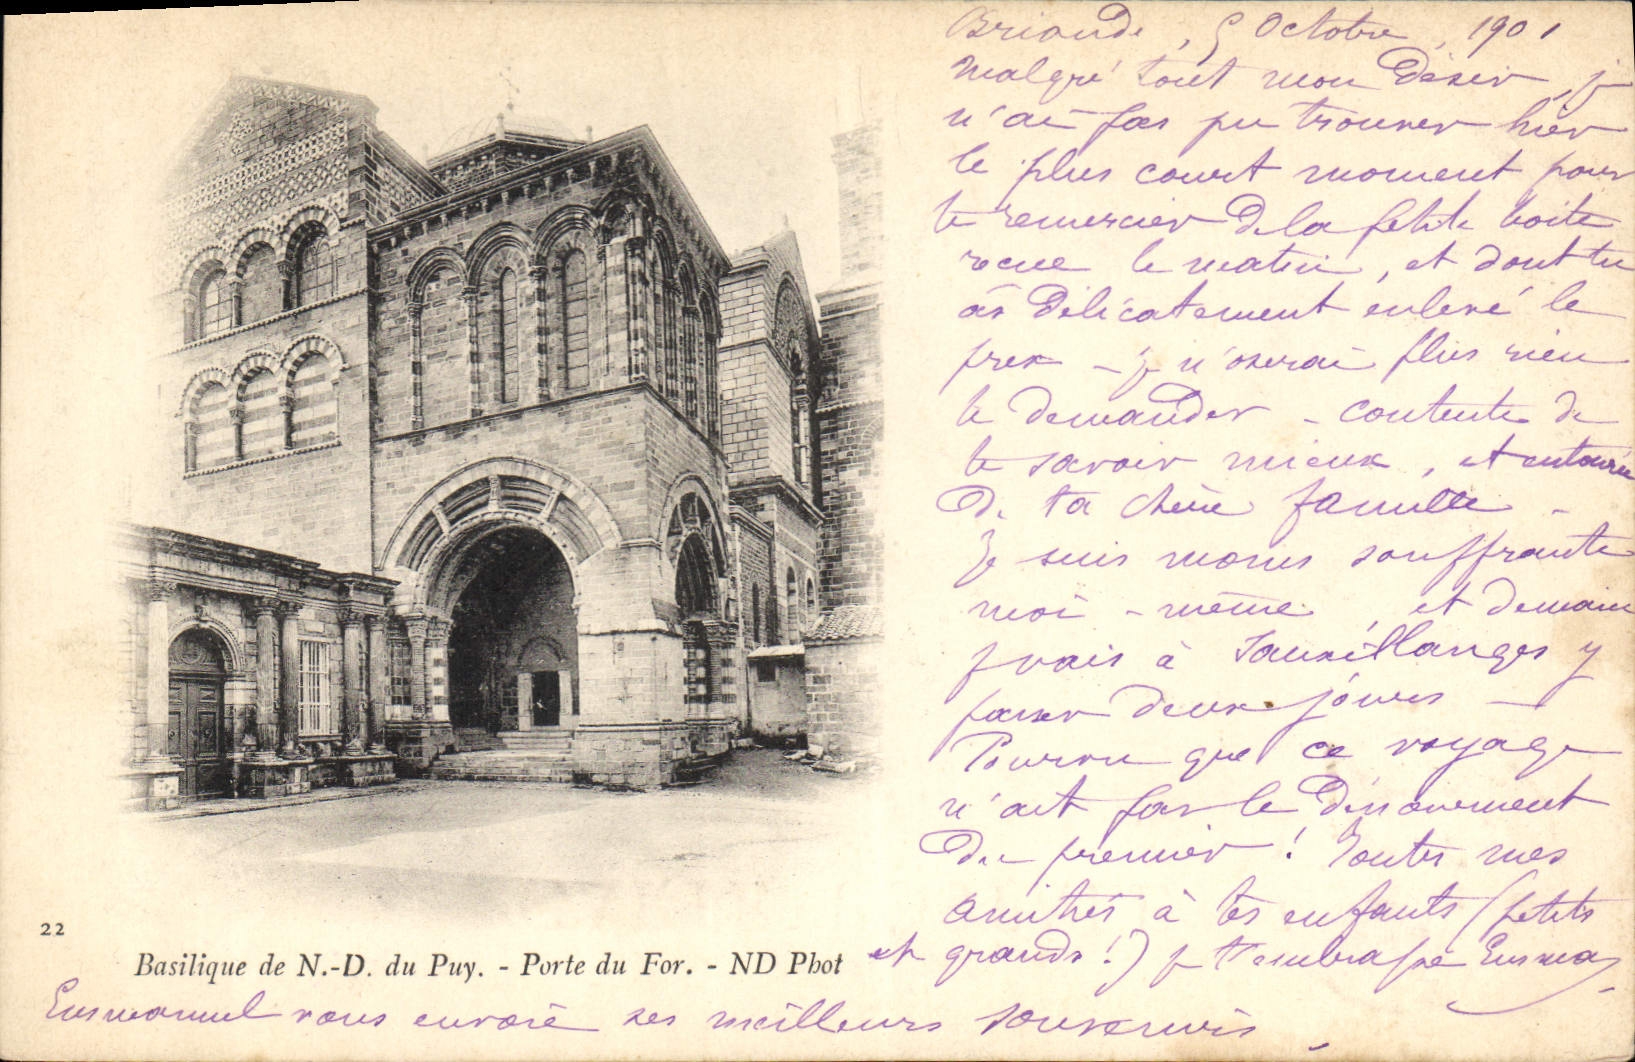 Brioude, 5 Octobre, 1901
Malgré tout mon désir, je
n'ai pas pu trouver hier
le plus court moment pour
te remercier de la petite boite
recue le matin, et dont tu
as délicatement enlevé le
prix - je n'oserai plus rien
te demander - contente de
te savoir mieux, et entourée
de ta chère famille -
Je suis moins souffrante
moi-même, et demain
je vais à Sauxillanges y
passer deux jours -
Pourvu que ce voyage
n'ait pas le dénouement
du premier ! Toutes mes
amitiés à tes enfants (petits
et grands !) je t'embrasse Emma
Emmanuel vous envoie ses meilleurs souvenirs.
22
Basilique de N.-D. du Puy. - Porte du For. - ND Phot